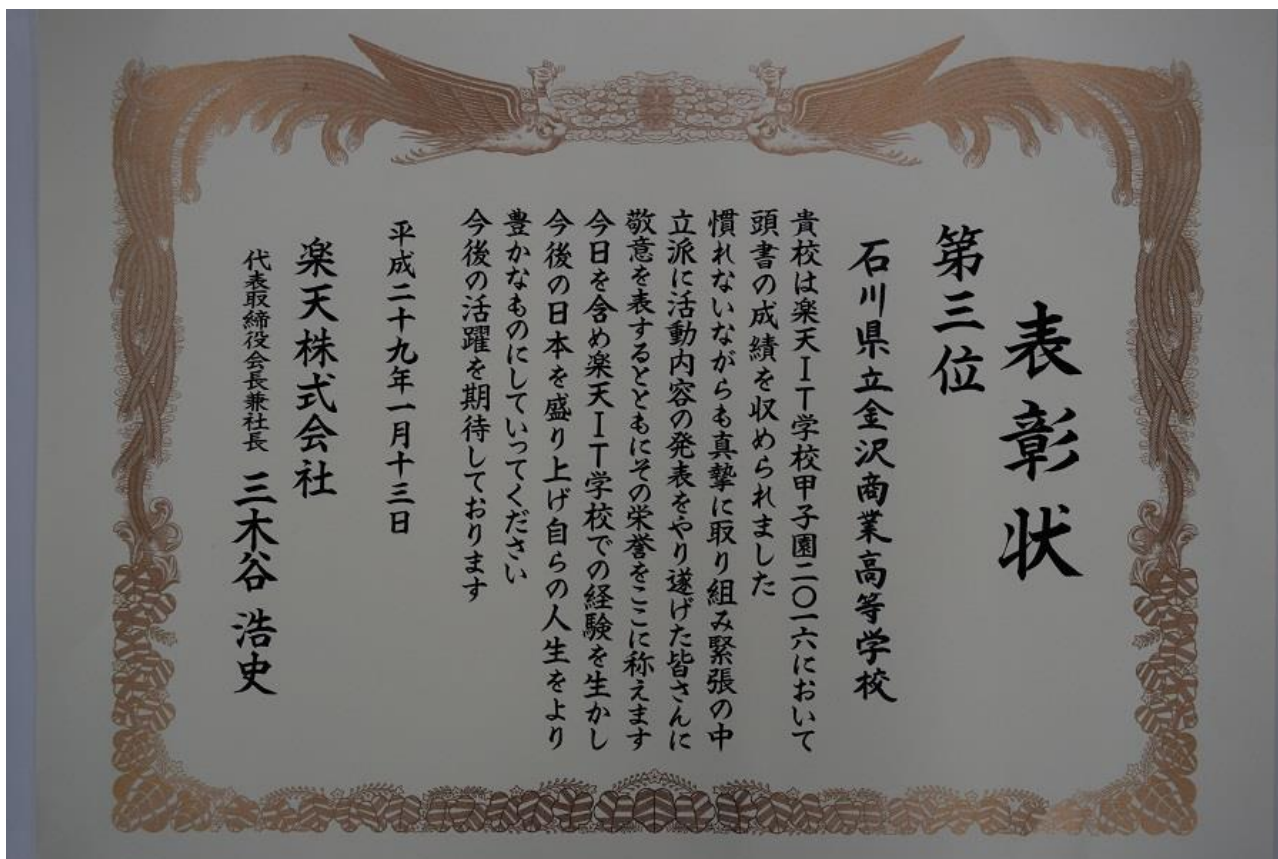 表彰状
第三位
石川県立金沢商業高等学校
貴校は楽天IT学校甲子園二〇一六において
頭書の成績を収められました
慣れないながらも真摯に取り組み緊張の中
立派に活動内容の発表をやり遂げた皆さんに
敬意を表するとともにその栄誉をここに称えます
今日を含め楽天IT学校での経験を生かし
今後の日本を盛り上げ自らの人生をより
豊かなものにしていってください
今後の活躍を期待しております
平成二十九年一月十三日
楽天株式会社
代表取締役会長兼社長 三木谷 浩史